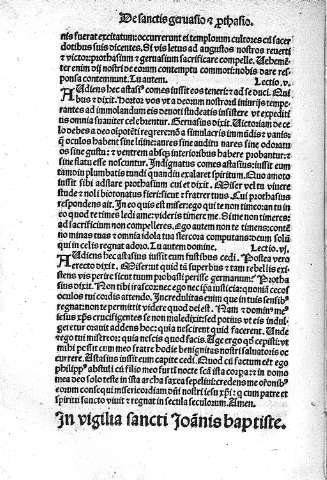 De sanctis geruasio & ꝓthasio.
nis fuerat excitatum: occurrerunt ei templorum cultores cũ sacer
dotibus suis dicentes. Si vis letus ad augustos nostros reuerti
& victor: prothasium & geruasium sacrificare compelle. Uehemẽ
ter enim dij nostri de eorum contemptu commoti: nobis dare res
ponsa contemnunt. Tu autem. Lectio .v.
AUdiens hec astasiꝰ comes iussit eos teneri: & ad se duci. Qui
bus & dixit. Hortor vos vt a deorum nostrorũ iniurijs tempe-
rantes ad immolandum eis deuoti studeatis insistere vt expediti
tis omnia sanciter celebrentur. Geruasius dixit. Uictoriam de ce
lo debes a deo oĩpotẽti reqirere nõ a simulacris immũdis & vanis:
q̃ oculos habent sine lumine aures sine auditu nares sine odoratu
os sine gustu: & ventrem absq̃ interioribus habere probantur: &
sine flatu esse noscuntur. Indignatus comes astasius: iussit eum
tamdiu plumbatis tundi quamdiu exalaret spiritum. Quo amoto
iussit sibi adstare prothasium cui et dixit. Miser vel tu viuere
stude & noli biotonatus fieri sicut & frater tuus. Cui prothasius
respondens ait. In eo quis est miser: ego qui te non timeo: an tu in
eo quod te times ledi a me: videris timere me. Si me non timeres:
ad sacrificium non compelleres. Ego autem non te timens: contẽ
no minas tuas & omnia idola tua stercora computans: deum solũ
qui in celis regnat adoro. Tu autem domine. Lectio .vj.
AUdiens hec astasius iussit eum fustibus cedi. Postea vero
erecto dixit. Miser: ut quid tã superbus & tam rebellis exi-
stens vis perire sicut tuum probasti perisse germanum? Protha
sius dixit. Non tibi irascor: nec ego nec ip̃a iusticia: quoniã cecos
oculos tui cordis attendo. Incredulitas enim que in tuis sensibꝰ
regnat: non te permittit videre quod dei est. Nam & dominꝰ me
iesus xp̃s crucifigentes se non maledixit: sed potius vt eis indul
geretur orauit addens hoc: quia nescirent quid facerent. Unde
ergo tui misereor: quia nescis quod facis. Age ergo qd̃ cepisti: vt
mihi possit cum meo fratre hodie benignitas nostri saluatoris oc
currere. Astasius iussit eum capite cedi. Quod cũ factum eẽt ego
philippꝰ abstuli cũ filio meo furti nocte scã ista corpora: & in domo
mea deo solo teste in ista archa saxea sepeliui: credens me orõnibꝰ
eorum consequi misericordiam dñi nostri iesu xp̃i: q̃ cum patre et
spiritu sancto viuit & regnat in secula seculorum. Amen.
In vigilia sancti Ioãnis baptiste.